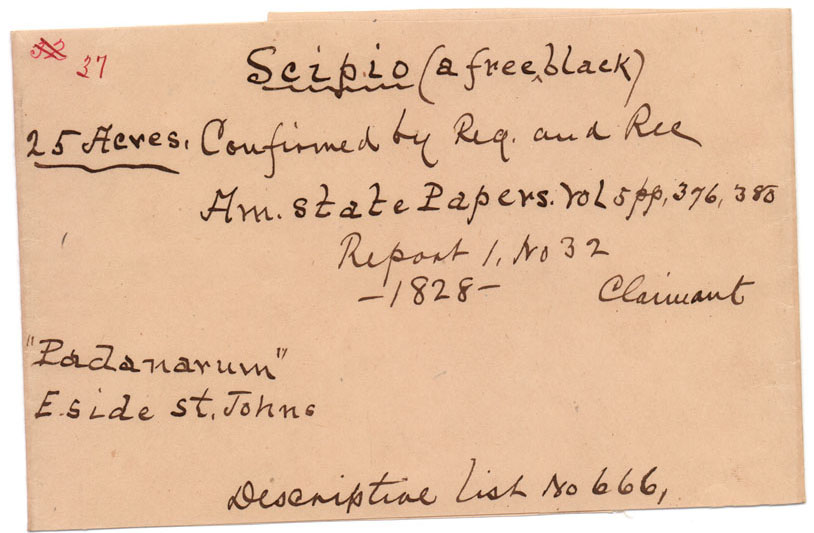 32 37
Scipio (a free ‸ black)
25 Acres. Confirmed by Reg. and Rec
Am. State Papers. Vol 5 pp, 376, 380
Report 1, No 32
-1828- Claimant
"Padanarum"
E. side St. Johns
Descriptive list No 666,